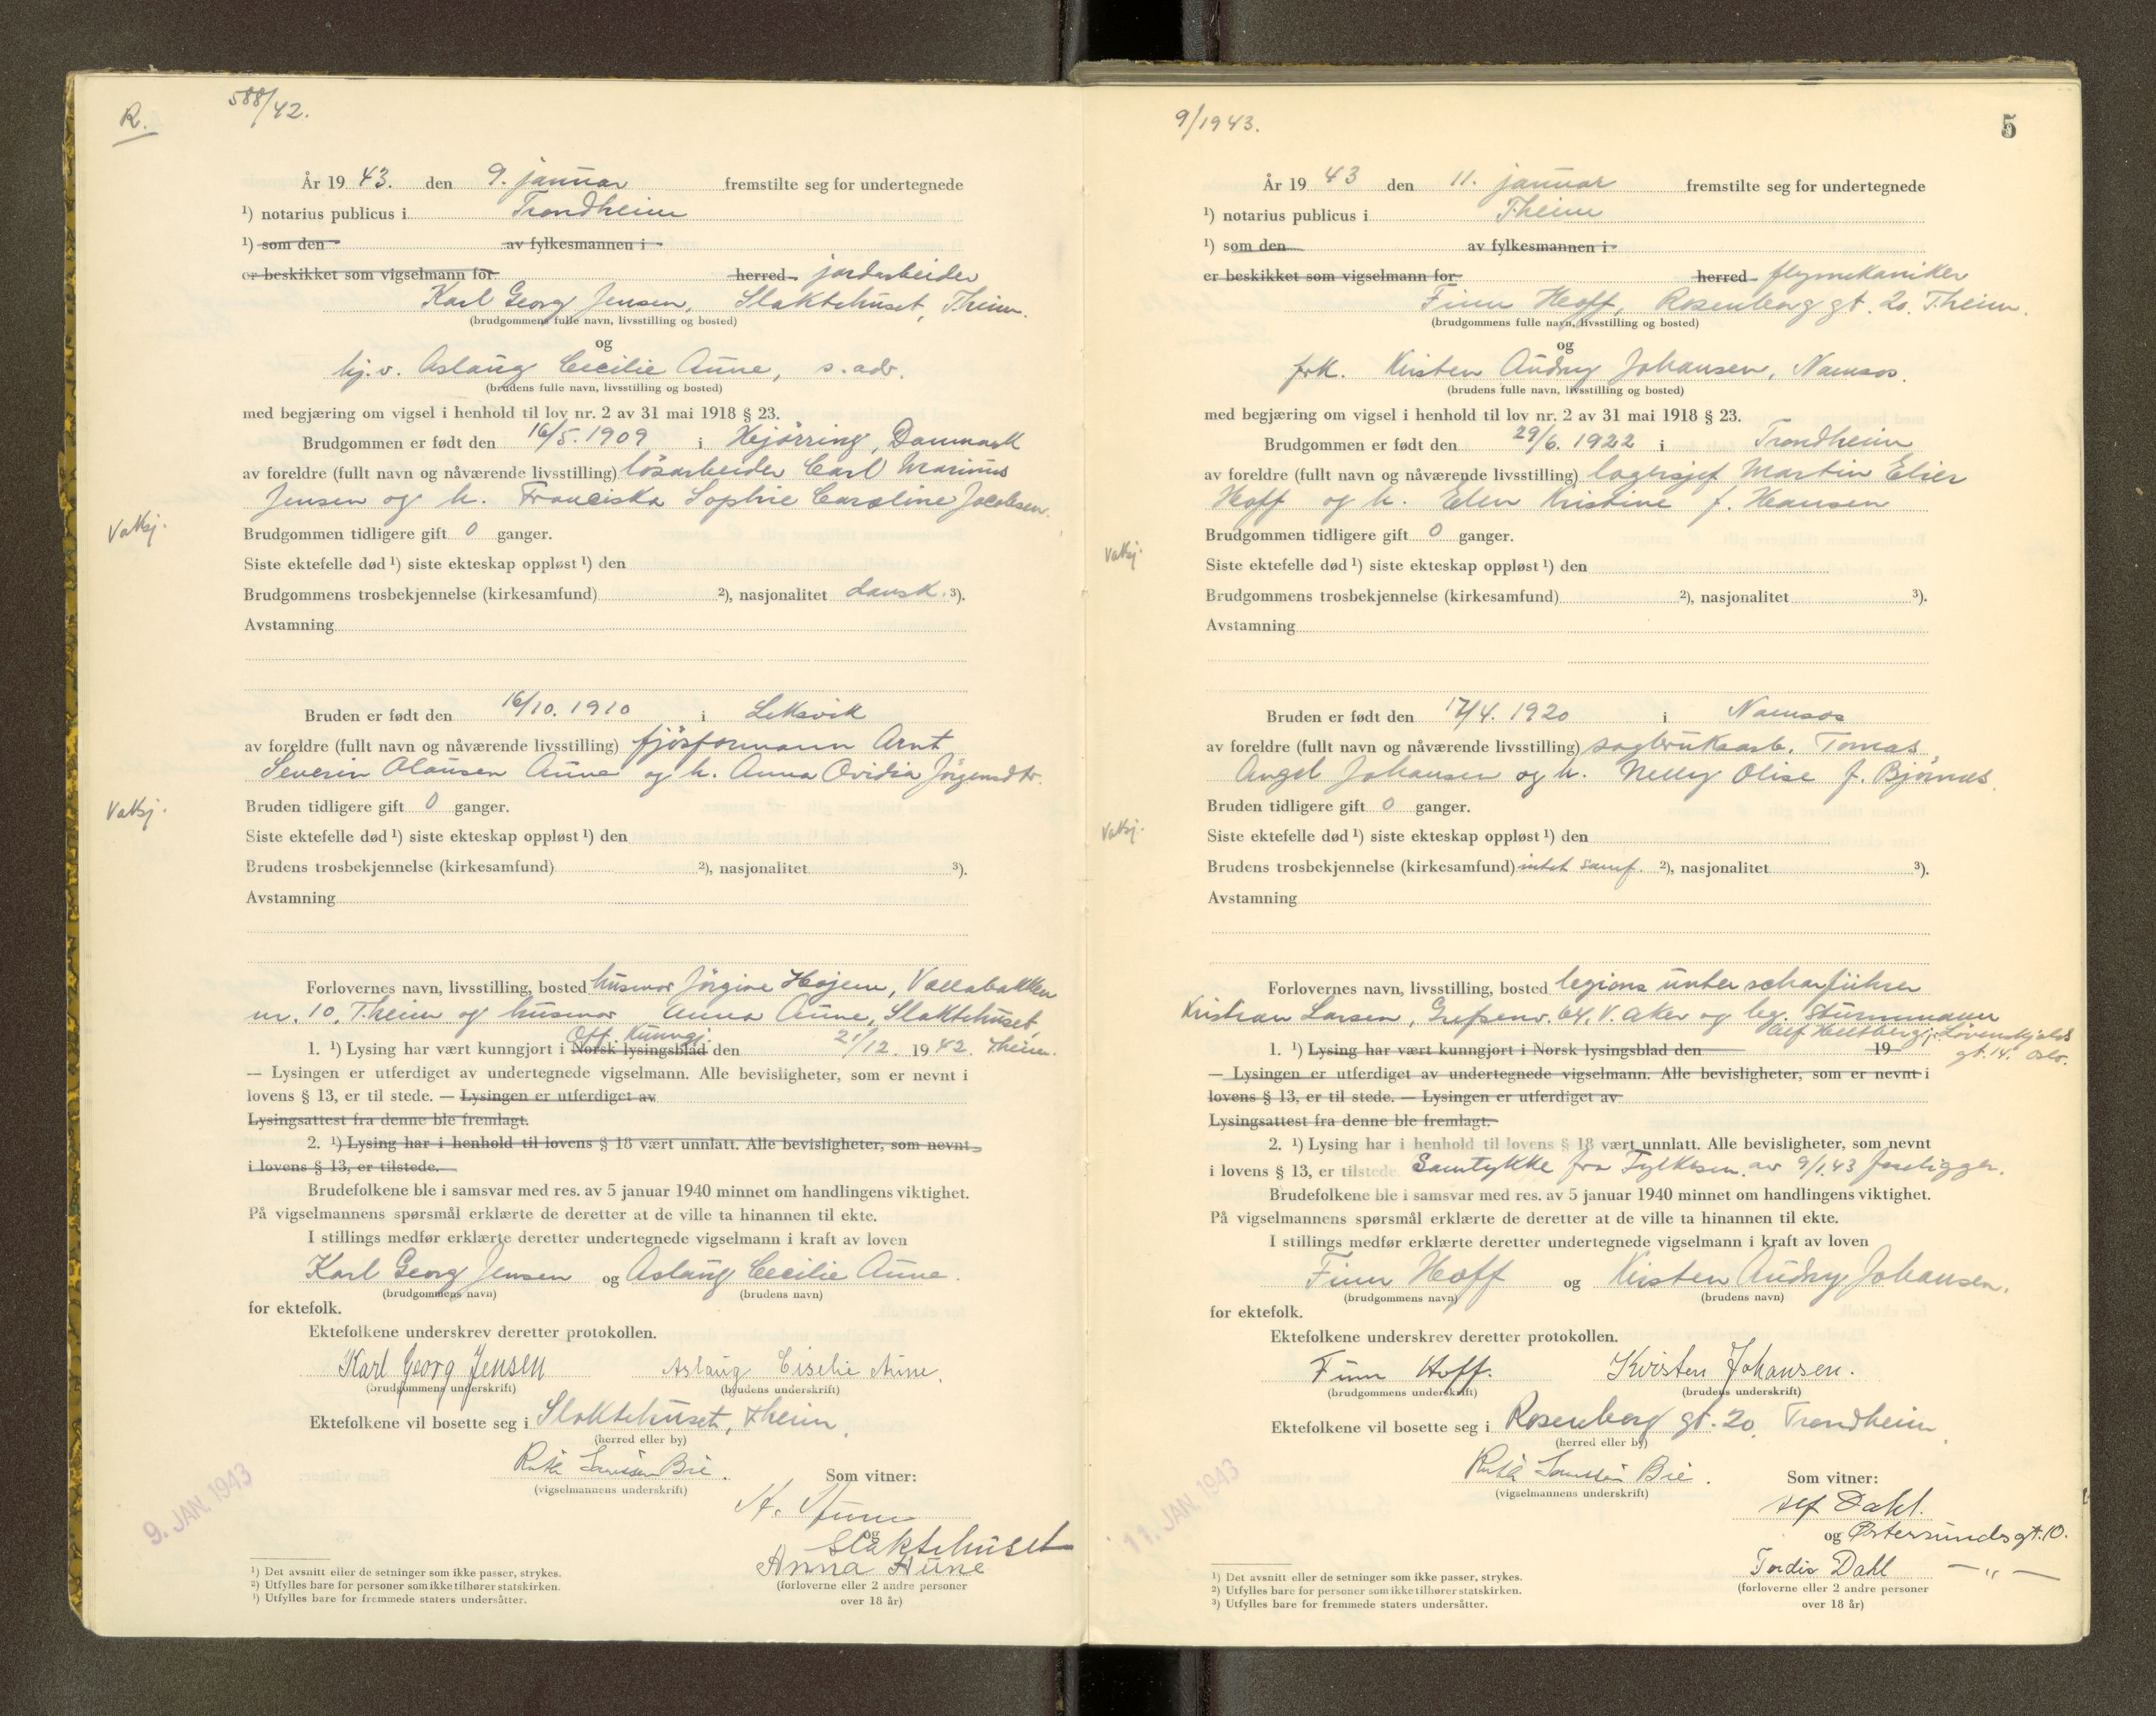 R.
588/42.
År 19 43. den 9. januar fremstilte seg for undertegnede
¹) notarius publicus i Trondheim
¹) som den av fylkesmannen i
er beskikket som vigselmann for herred jordarbeider
Karl Georg Jensen, Slaktehuset, Theim.
(brudgommens fulle navn, livsstilling og bosted)
og
hj.v. Aslaug Cecilie Aune, s. adr.
(brudens fulle navn, livsstilling og bosted)
med begjæring om vigsel i henhold til lov nr. 2 av 31 mai 1918 § 23.
Brudgommen er født den 16/5. 1909 i Hjørring, Danmark
av foreldre (fullt navn og nåværende livsstilling) løsarbeider Carl Marinus
Jensen og h. Franciska Sophie Caroline Jacobsen.
Vaksj.
Brudgommen tidligere gift 0 ganger.
Siste ektefelle død ¹) siste ekteskap oppløst ¹) den
Brudgommens trosbekjennelse (kirkesamfund) ²), nasjonalitet dansk. ³).
Avstamning
Bruden er født den 16/10. 1910 i Leksvik
av foreldre (fullt navn og nåværende livsstilling) fjøsformann Arnt
Severin Olausen Aune og h. Anna Ovidia Jørgensdtr.
Vaksj.
Bruden tidligere gift 0 ganger.
Siste ektefelle død ¹) siste ekteskap oppløst ¹) den
Brudens trosbekjennelse (kirkesamfund) ²), nasjonalitet ³).
Avstamning
Forlovernes navn, livsstilling, bosted husmor Jørgine Hojem, Vollabakken
nr. 10, Theim og husmor Anna Aune, Slaktehuset,
Off. Kunngj.
1. ¹) Lysing har vært kunngjort i Norsk lysingsblad den 21/12. 1942. Theim.
— Lysingen er utferdiget av undertegnede vigselmann. Alle bevisligheter, som er nevnt i
lovens § 13, er til stede. — Lysingen er utferdiget av
Lysingsattest fra denne ble fremlagt.
2. ¹) Lysing har i henhold til lovens § 18 vært unnlatt. Alle bevisligheter, som nevnt
i lovens § 13, er tilstede.
Brudefolkene ble i samsvar med res. av 5 januar 1940 minnet om handlingens viktighet.
På vigselmannens spørsmål erklærte de deretter at de ville ta hinannen til ekte.
I stillings medfør erklærte deretter undertegnede vigselmann i kraft av loven
Karl Georg Jensen og Aslaug Cecilie Aune.
(brudgommens navn) (brudens navn)
for ektefolk.
Ektefolkene underskrev deretter protokollen.
Karl Georg Jensen Aslaug Ciselie Aune.
(brudgommens underskrift) (brudens underskrift)
Ektefolkene vil bosette seg i Slaktehuset, Theim.
(herred eller by)
Ruth Bie.
(vigselmannens underskrift)
Som vitner:
A. Aune
og
Slaktehuset
Anna Aune
(forloverne eller 2 andre personer
over 18 år)
9. JAN. 1943
¹) Det avsnitt eller de setninger som ikke passer, strykes.
²) Utfylles bare for personer som ikke tilhører statskirken.
³) Utfylles bare for fremmede staters undersåtter.
9/1943.
5
År 19 43 den 11. januar fremstilte seg for undertegnede
¹) notarius publicus i Theim
¹) som den av fylkesmannen i
er beskikket som vigselmann for herred flymekaniker
Finn Hoff, Rosenborg gt. 20. Theim.
(brudgommens fulle navn, livsstilling og bosted)
og
frk. Kirsten Audny Johansen, Namsos.
(brudens fulle navn, livsstilling og bosted)
med begjæring om vigsel i henhold til lov nr. 2 av 31 mai 1918 § 23.
Brudgommen er født den 29/6. 1922 i Trondheim
av foreldre (fullt navn og nåværende livsstilling) lagersjef Martin Elier
Hoff og h. Elen Kristine f. Hansen
Vaksj.
Brudgommen tidligere gift 0 ganger.
Siste ektefelle død ¹) siste ekteskap oppløst ¹) den
Brudgommens trosbekjennelse (kirkesamfund) ²), nasjonalitet ³).
Avstamning
Bruden er født den 17/4. 1920 i Namsos
av foreldre (fullt navn og nåværende livsstilling) sagbruksarb. Tomas
Angel Johansen og h. Nelly Olise f. Bjørnes.
Bruden tidligere gift 0 ganger.
Vaksj.
Siste ektefelle død ¹) siste ekteskap oppløst ¹) den
Brudens trosbekjennelse (kirkesamfund) intet samf. ²), nasjonalitet ³).
Avstamning
Forlovernes navn, livsstilling, bosted legions unterscharführer
Kristian Larsen, Grefsenv. 64, V. Aker og leg. Sturmmann
Alf Heltberg jr. Løvenskjolds
gt. 14. Oslo.
1. ¹) Lysing har vært kunngjort i Norsk lysingsblad den 19
— Lysingen er utferdiget av undertegnede vigselmann. Alle bevisligheter, som er nevnt i
lovens § 13, er til stede. — Lysingen er utferdiget av
Lysingsattest fra denne ble fremlagt.
2. ¹) Lysing har i henhold til lovens § 18 vært unnlatt. Alle bevisligheter, som nevnt
i lovens § 13, er tilstede. Samtykke fra Fylkesm. av 9/1.43 foreligger.
Brudefolkene ble i samsvar med res. av 5 januar 1940 minnet om handlingens viktighet.
På vigselmannens spørsmål erklærte de deretter at de ville ta hinannen til ekte.
I stillings medfør erklærte deretter undertegnede vigselmann i kraft av loven
Finn Hoff og Kirsten Audny Johansen.
(brudgommens navn) (brudens navn)
for ektefolk.
Ektefolkene underskrev deretter protokollen.
Finn Hoff. Kirsten Johansen.
(brudgommens underskrift) (brudens underskrift)
Ektefolkene vil bosette seg i Rosenborg gt. 20, Trondheim.
(herred eller by)
Ruth Bie.
(vigselmannens underskrift)
Som vitner:
Alf Dahl.
og Østersundsgt. 10.
Tordis Dahl — " —
(forloverne eller 2 andre personer
over 18 år)
11. JAN. 1943
¹) Det avsnitt eller de setninger som ikke passer, strykes.
²) Utfylles bare for personer som ikke tilhører statskirken.
³) Utfylles bare for fremmede staters undersåtter.